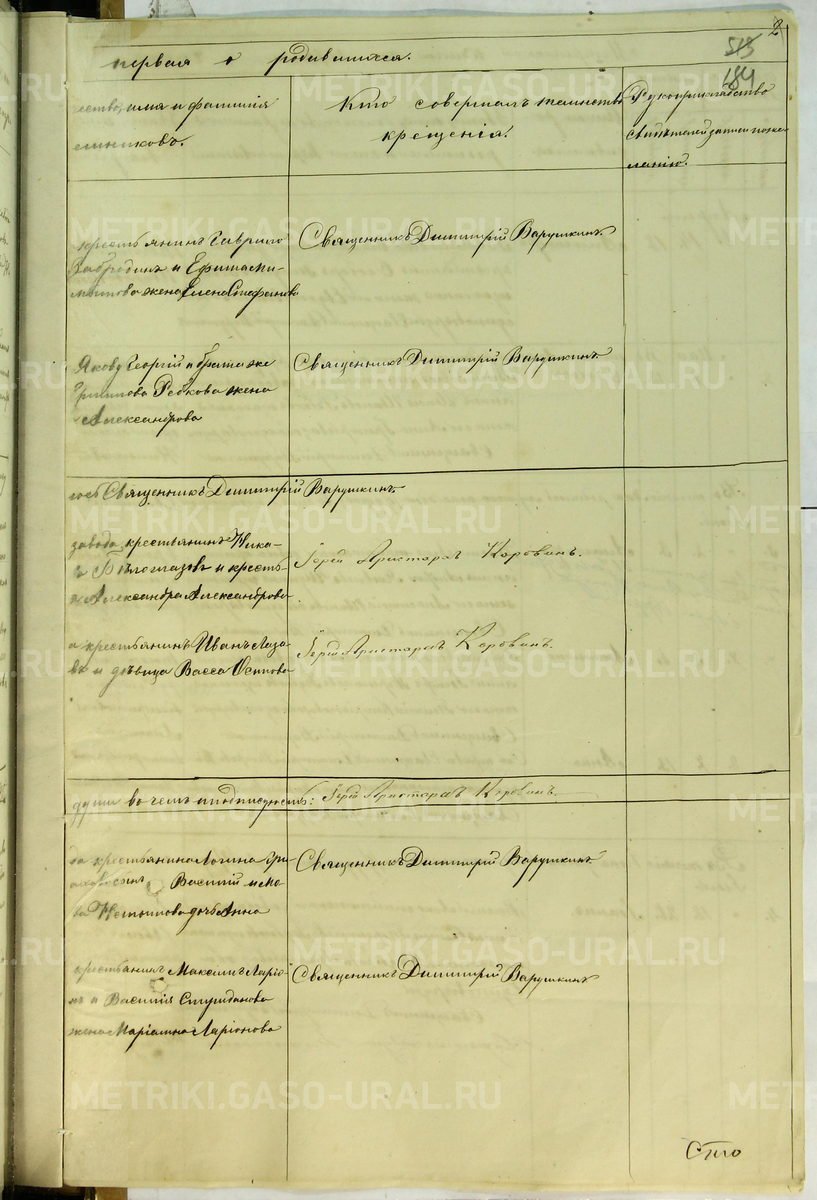 2
513
184
первая о родившихся.
ество, имя и фамилия
емниковъ.
Кто совершалъ таинство
крещенія.
Рукоприкладство
свидѣтелей записи по же-
ланію.
крестьянинъ Гаврило
Забродинъ и
жена Елена Стефанова
Священникъ Димитрій Варушкинъ
Якову Георгій и брата же
Рябкова жена
Александрова
Священникъ Димитрій Варушкинъ
Священникъ Димитрій Варушкинъ.
завода, крестьянинъ Ника-
Бѣлоглазовъ и кресть-
Александра Александрова
Іерей Аристархъ Коровинъ.
а крестьянинъ Иванъ Лаза-
въ и дѣвица Васса Осипова
Іерей Аристархъ Коровинъ.
души во чемъ и подписуюсь: Іерей Аристархъ Коровинъ.
крестьянина Логина Гри-
сынъ Василій и
дочь Анна
Священникъ Димитрій Варушкинъ
крестьянинъ Максимъ Ларіо-
нъ и Василія
жена Маріамна Ларіонова
Священникъ Димитрій Варушкинъ
Сто
METRIKI.GASO-URAL.RU